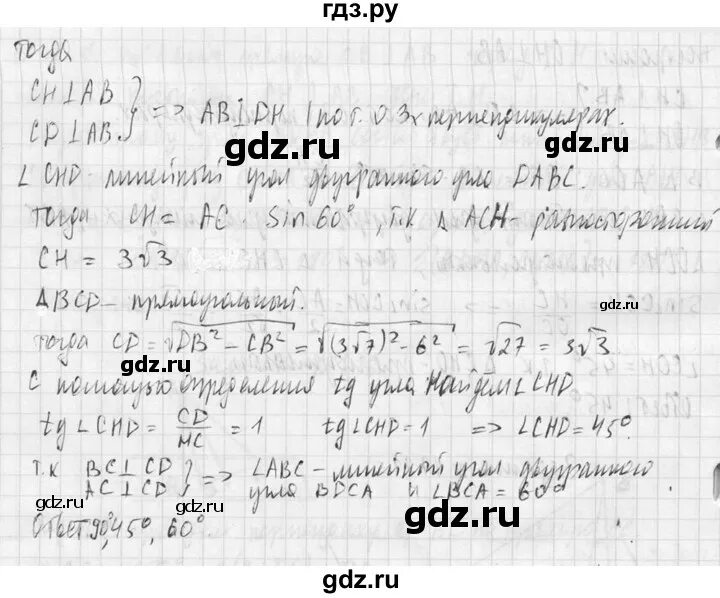 гдз.ру
тогда
CH⊥AB
CD⊥AB } => AB⊥DH (по т. о 3х перпендикулярах.
gdz.ru gdz.ru
∠CHD - линейный угол двугранного угла DABC.
тогда CH = AC sin 60°, т.к Δ ACH - равносторонний
CH = 3√3
gdz.ru
ΔBCD - прямоугольный.
gdz.ru
тогда CD = √DB² - CB² = √(3√7)² - 6² = √27 = 3√3
С помощью определения tg угла найдем ∠CHD
gdz.ru
tg ∠CHD = CD/HC = 1 tg∠CHD = 1 => ∠CHD = 45°.
т.к BC⊥CD
AC⊥CD } => ∠ABC - линейный угол двугранного
угла BDCA и ∠BCA = 60°
gdz.ru gdz.ru
Ответ: 90°, 45°, 60°
gdz.ru
gdz.ru